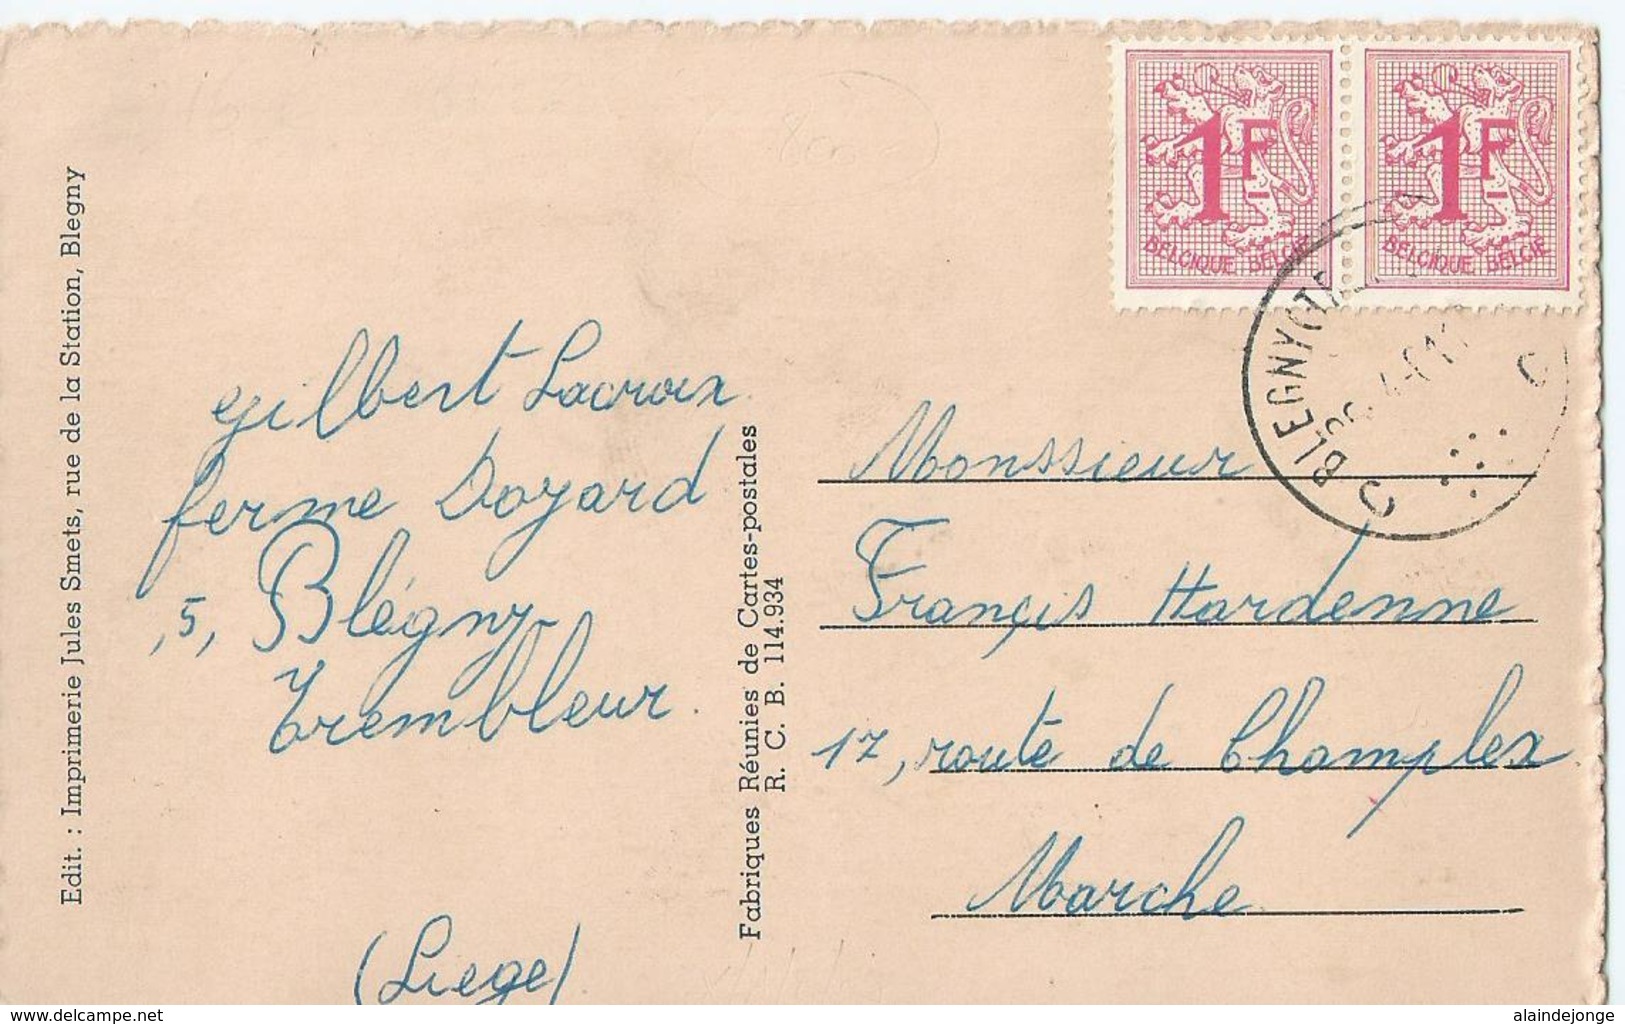 1F
BELGIQUE BELGIE
1F
BELGIQUE BELGIE
BLEGNY
gilbert Lacroix
ferme Doyard
,5, Blégny
Trembleur.
(Liege)
Monssieur
Françis Hardenne
17, route de Champlex
Marche
Edit. : Imprimerie Jules Smets, rue de la Station, Blegny
Fabriques Réunies de Cartes-postales
R. C. B. 114.934
www.delcampe.net
alaindejonge